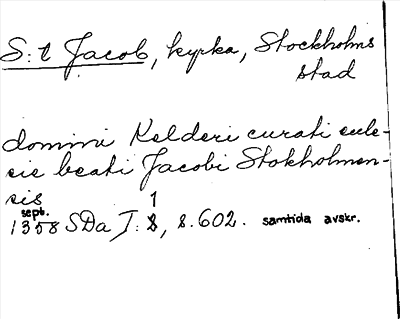 S:t Jacob, kyrka, Stockholms
stad
domini Kelderi curati eule-
sie beati Jacobi Stokholmen-
sis
1
sept.
1358 SDa I: 8, s. 602. samtida avskr.